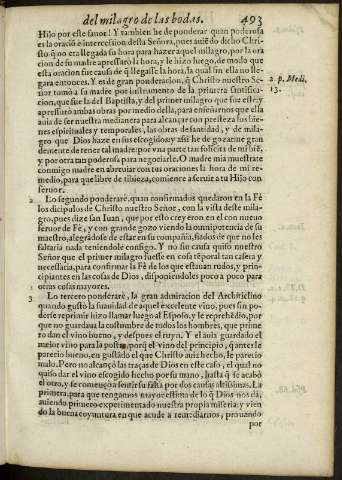 del milagro de las bodas. 493
Hijo por este fauor! Y tambien he de ponderar quan poderosa
es la oració e intercession desta Señora, pues auiēdo dicho Chri-
sto q̃ no era llegada su hora para hazer aquel milagro, por la ora
cion de su madre apressuró la hora, y le hizo luego, de modo que
esta oracion fue causa de q̃ llegasse la hora, la qual sin ella no lle-
gara entonces. Y es de gran ponderacion, q̃ Christo nuestro Se-
ñor tomó a su madre por instrumento de la primera santifica-
cion, que fue la del Baptista, y del primer milagro que fue este: y
apressuró ambas obras por medio della, para enseñarnos que ella
auia de ser nuestra medianera para alcançar con presteza sus bie-
nes espirituales y temporales, las obras de santidad, y de mila-
gro que Dios haze en sus escogidos: y assi he de gozarme gran
demente de tener tal madre: por vna parte tan solicita de mi biē,
y por otra tan poderosa para negociarle. O madre mia muestrate
conmigo madre en abreuiar con tus oraciones la hora de mi re-
medio, para que libre de tibieza, comience a seruir a tu Hijo con
feruor.
2. p. Medi.
13.
2 Lo segundo ponderaré, quan confirmados quedaron en la Fè
los dicipulos de Christo nuestro Señor, con la vista deste mila-
gro, pues dize san Iuan, que por esto creyeron en el con nueuo
feruor de Fè, y con grande gozo viendo la omnipotencia de su
maestro, alegrádose de estar en su compañia, fiados de que no les
faltaria nada teniendole consigo. Y no sin causa quiso nuestro
Señor que el primer milagro fuesse en cosa tēporal tan casera y
necessaria, para confirmar la Fè de los que estauan rudos, y prin-
cipiantes en las cosas de Dios, disponiendolos poco a poco para
otras cosas mayores.
3 Lo tercero ponderaré, la gran admiracion del Architriclino
quando gustó la suauidad de aquel excelente vino, pues sin po-
derse reprimir hizo llamar luego al Esposo, y le reprehēdio, por
que no guardaua la costumbre de todos los hombres, que prime
ro dan el vino bueno, y despues el ruyn. Y el auia guardado el
mejor vino para la postre, porq̃ el vino del principio, q̃ antes le
parecio bueno, en gustádo el que Christo auia hecho, le parecio
malo. Pero no alcançó las traças de Dios en este caso, el qual no
quiso dar el vino escogido hecho por su mano, hasta q̃ se acabó
el otro, y se començó a sentir su falta por dos causas altissimas. La
primera, para que tengamos mayor estima de lo q̃ Dios nos dà,
auiendo primero experimentado nuestra propia miseria: y vien
do la buena coyuntura en que acude a remediarnos, prouando
por